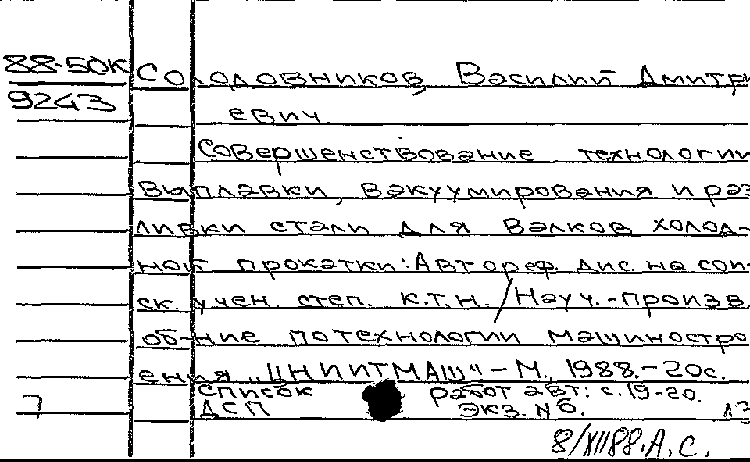 88-50К Солодовников, Василий Дмитри
9243 евич.
Совершенствование технологии
выплавки, вакуумирования и раз
ливки стали для валков холод-
ной прокатки: Автореф. дис. на сои-
ск. учен. степ. к.т.н. / Науч.-произв.
об-ние по технологии машиностро
ения "ЦНИИТМАШ" - М., 1988.-20с.
Список работ авт: с.19-20.
7 ДСП Экз. №6.
8/XII88. А.С.